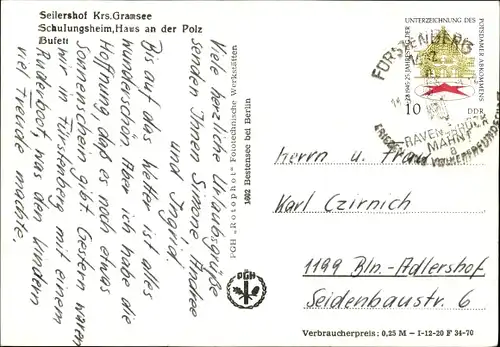 Seilershof Krs.Gransee
Schulungsheim,Haus an der Polz
Bufett
Bis auf das Wetter ist alles
wunderschön. Aber ich habe die
Hoffnung, daß es noch etwas
Sonnenschein gibt. Gestern waren
wir in Fürstenberg mit einem
Ruderboot, was den Kindern
viel Freude machte.
Viele herzliche Urlaubsgrüße
senden Ihnen Simone, Andree
und Ingrid.
PGH „Rotophot" Fototechnische Werkstätten
1602 Bestensee bei Berlin
PGH
25. JAHRESTAG DER UNTERZEICHNUNG DES POTSDAMER ABKOMMENS
10 DDR
FÜRSTENBERG
RAVENSBRÜCK
MAHNT
Herrn u. Frau
Karl Czirnich
1199 Bln.-Adlershof
Seidenbaustr. 6
Verbraucherpreis: 0,25 M – I-12-20 F 34-70